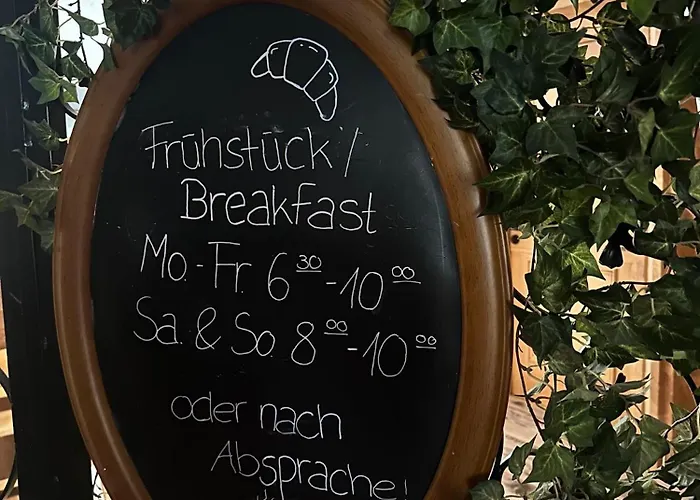 Frühstück /
Breakfast
Mo.-Fr. 6 30 - 10 00
Sa. & So. 8 00 - 10 00
oder nach
Absprache!